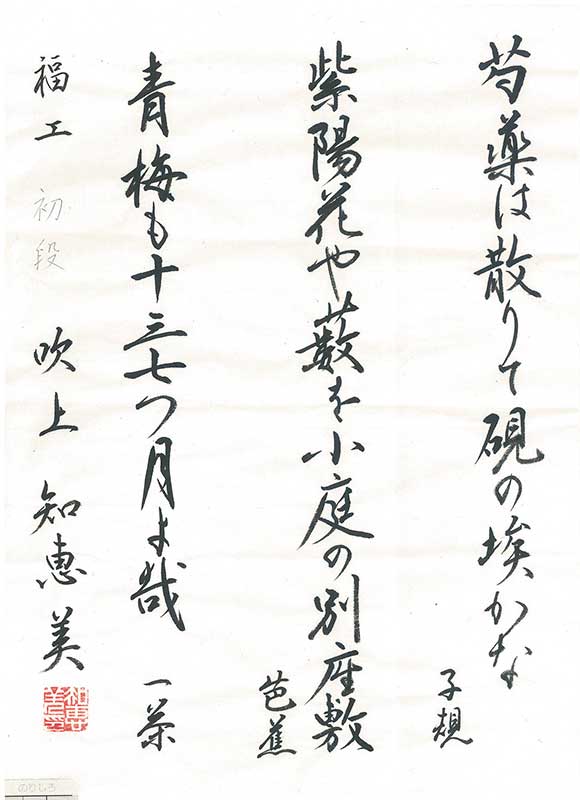 芍薬は散りて硯の埃かな
子規
紫陽花や藪を小庭の別座敷
芭蕉
青梅も十三七つ月よ哉
一茶
福工 初段 吹上 知恵美
のりしろ